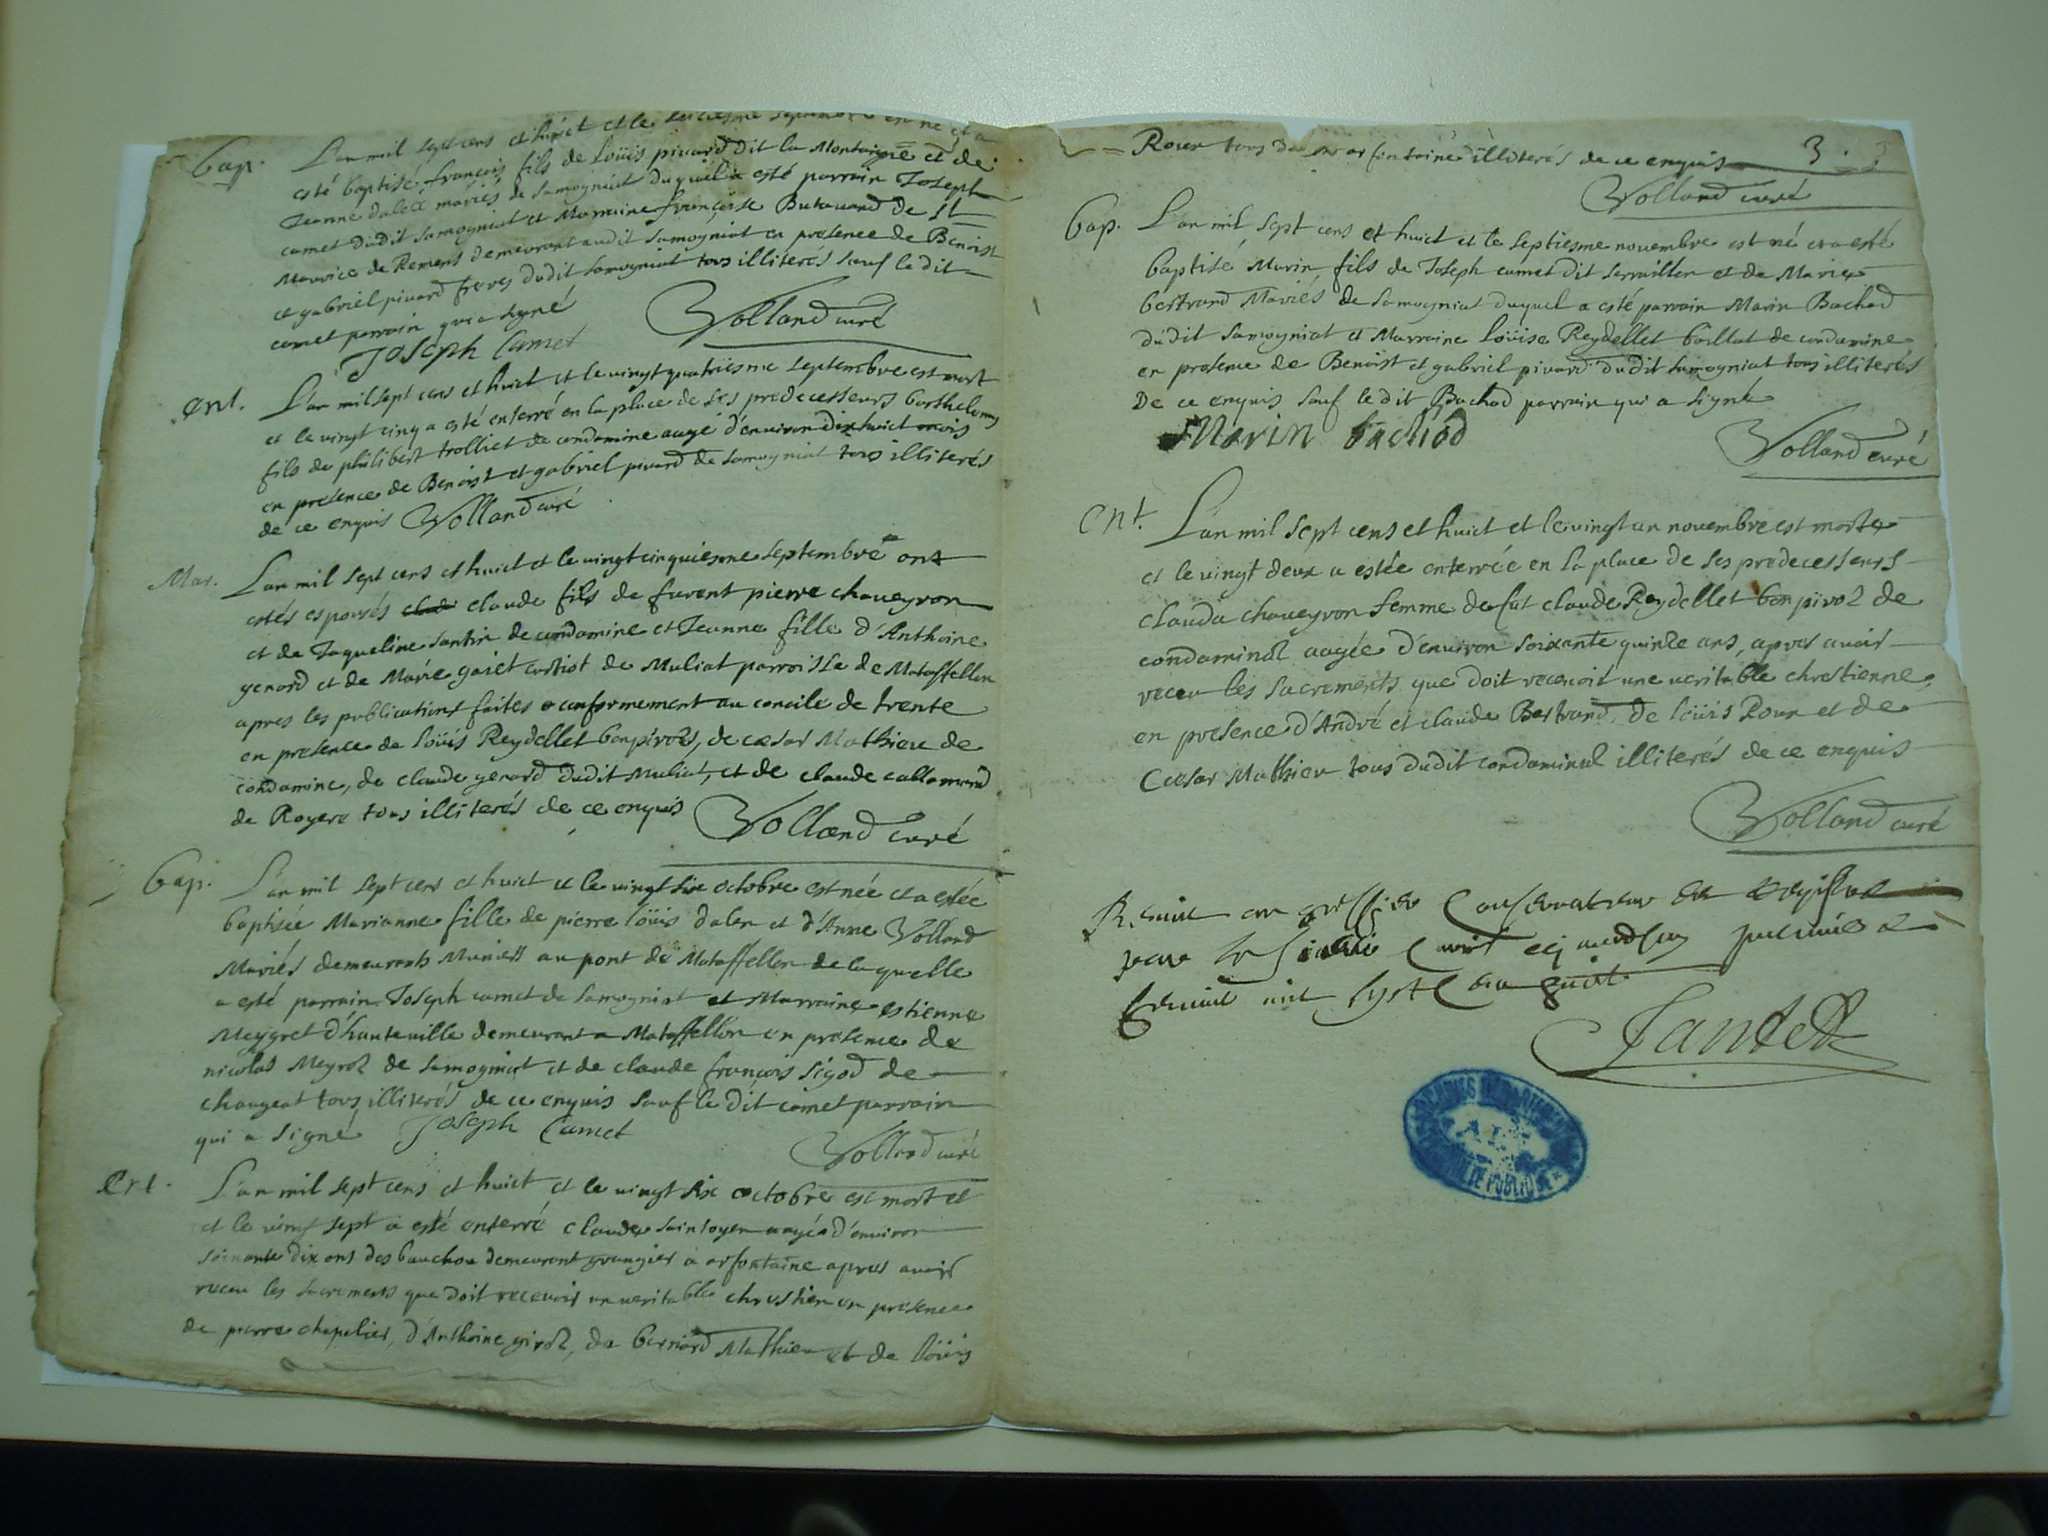 Bap. L'an mil sept cens et huict et le septembre est né et a
esté baptisé françois fils de Loüis pivard dit la Montaigne et de
Jeanne mariés de samogniat duquel a esté parrain Joseph
camet dudit samogniat et Marraine françoise de St
Maurice de Remens demeurant audit samogniat en presence de Benoist
et gabriel pivard freres dudit samogniat tous illiterés sauf le dit
camet parrain qui a signé
Joseph Camet Volland curé
Ent. L'an mil sept cens et huict et le vingt quatriesme septembre est mort
et le vingt cinq a esté enterré en la place de ses predecesseurs barthelemy
fils de philibert trolliet de condamine aagé d'environ dix huict mois
en presence de Benoist et gabriel pivard de samogniat tous illiterés
de ce enquis Volland curé
Mar. L'an mil sept cens et huict et le vingt cinquiesme septembre ont
estés espousés claude fils de furent pierre chaueyron
et de Jaqueline santin de condamine et Jeanne fille d'Anthoine
genard et de Marie gaiet de Muliat parroisse de Mataffellon
apres les publications faites conformement au concile de trente
en presence de loüis Reydellet bonpivol, de cæsar Mathieu de
condamine, de claude gerard dudit Muliat, et de claude callamard
de Royere tous illiterés de ce enquis Volland curé
Bap. L'an mil sept cens et huict et le vingt six octobre est née et a estée
baptisée Marianne fille de pierre loüis dalen et d'Anne Volland
Mariés demeurants au pont de Mataffellon de laquelle
a esté parrain Joseph camet de samogniat et Marraine estienne
Meygret d'hauteville demeurant a Mataffellon en presence de
nicolas Meyrol de samogniat et de claude françois sigod de
changeat tous illiterés de ce enquis sauf le dit camet parrain
qui a signé Joseph Camet
Volland curé
Ent. L'an mil sept cens et huict et le vingt six octobre est mort et
et le vingt sept a esté enterré claude aagé d'environ
soixante dix ans des bauchou demeurant grangier a orfontaine apres avoir
receu les sacrements que doit recevoir un veritable chrestien en presence
de pierre chapelier, d'Anthoine girod, de bernard Mathieu et de loüis
Roux tous de orfontaine illiterés de ce enquis 3.
Volland curé
Bap. L'an mil sept cens et huict et le septiesme novembre est né et a esté
baptisé Marin fils de Joseph camet dit serraillen et de Marie
bertrand Mariés de samogniat duquel a esté parrain Marin Bachod
dudit samogniat et Marraine loüise Reydellet baillat de condamine
en presence de Benoist et gabriel pivard dudit samogniat tous illiterés
De ce enquis sauf le dit Bachod parrain qui a signé
Marin bachod
Volland curé
Ent. L'an mil sept cens et huict et le vingt un novembre est morte
et le vingt deux a estée enterrée en la place de ses predecesseurs
clauda chaueyron femme de fut claude Reydellet bonpivol de
condaminal aagée d'environ soixante quinze ans, apres avoir
receu les sacrements que doit recevoir une veritable chrestienne,
en presence d'André et claude Bertrand, de loüis Roux et de
Cæsar Mathieu tous dudit condaminal illiterés de ce enquis
Volland curé
greffier Conservateur registre
premier
mil sept huit
Jantet